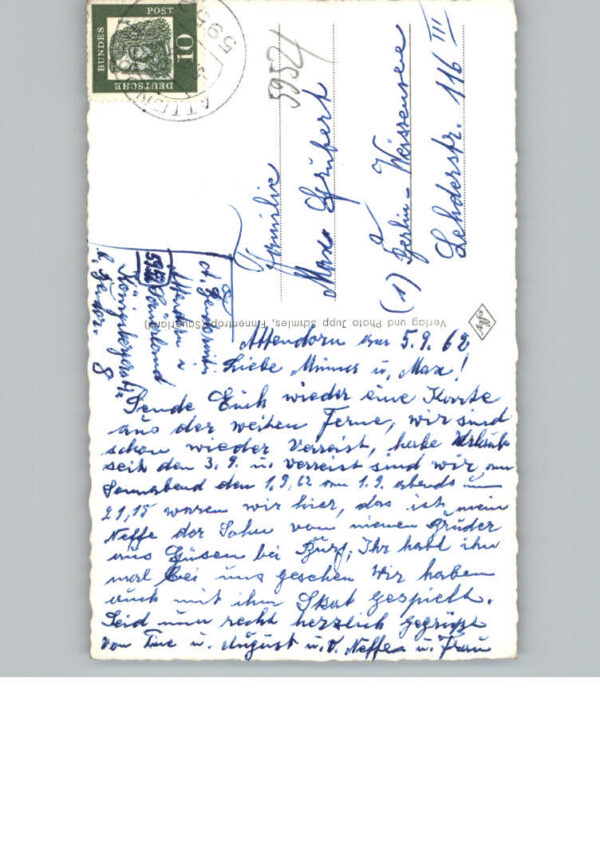 DEUTSCHE
BUNDES
POST
10
ATTEN
5952
5954
Familie
Max Grübert
(1) Berlin-Weissensee
Lehderstr. 116 III
Verlag und Photo Jupp Schmies, Finnentrop (Sauerland)
Attendorn
5952 Sauerland
8
Attendorn 5.9.62
Liebe Minna u. Max!
Sende Euch wieder eine Karte
aus der weiten Ferne, wir sind
schon wieder verreist, habe Urlaub
seit den 3.9. u. verreist sind wir am
Sonnabend den 1.9.62 am 1.9. abends um
21,15 waren wir hier, das ist mein
Neffe der Sohn von meinen Brüder
aus Güsen bei Burg, Ihr habt ihn
mal bei uns gesehen Wir haben
auch mit ihm Skat gespielt.
Seid nun recht herzlich gegrüßt
von Tine u. August u. v. Neffen u. Frau